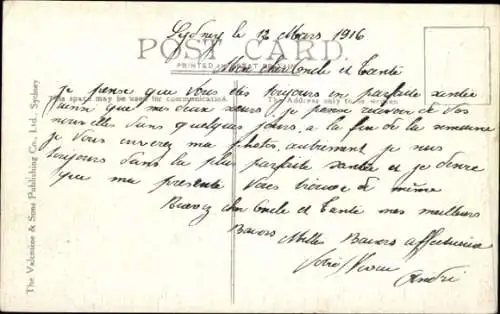 Sydney le 12 Mars 1916
POST CARD
PRINTED IN GREAT BRITAIN
Mon cher Oncle et Tante
je pense que vous êtes toujours en parfaite santé
This space may be used for communication. The Address only to be written
ainsi que mes deux sœurs. je pense recevoir de vos
nouvelles dans quelques jours. a la fin de la semaine
je vous enverez ma photos. autrement je suis
toujours dans la plus parfaite santée et je désire
que ma presente vous trouve de même
Recevez cher Oncle et Tante mes meilleurs
Baisers Mille Baisers affectueux
Votre Neveu
André
The Valentine & Sons Publishing Co., Ltd., Sydney